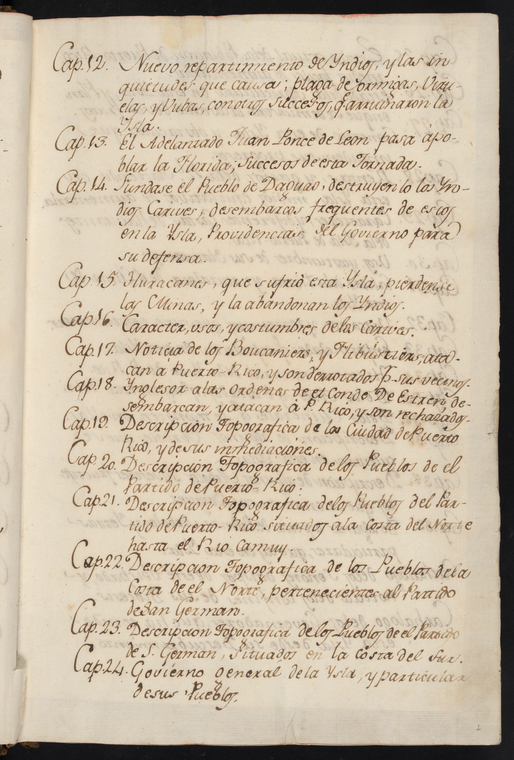 Cap. 12. Nuevo repartimiento de Yndios, y las in
quietudes que causa; plaga de formigas, Virue
las, y Bubas, con otros Sucesos, q. arruinaron la
Ysla.
Cap. 13. El Adelantado Juan Ponce de Leon pasa à po
blar la Florida; Sucesos de esta Jornada.
Cap. 14. Fundase el Pueblo de Daguao, destruyenlo los Yn
dios Carives, desembarcos frequentes de estos
en la Ysla, Providencias del Govierno para
su defensa.
Cap. 15. Huracanes, que sufrió esta Ysla; pierdense
las Minas, y la abandonan los Yndios.
Cap. 16. Caracter, usos, y costumbres de los Carives.
Cap. 17. Noticia de los Boucaniers, y Flibustiers; ata-
can a Puerto-Rico, y son derrotados p. sus vecinos.
Cap. 18. Ynglesos a las ordenes de el Conde De Estren de-
sembarcan, y atacan à P. Rico, y son rechazados.
Cap. 19. Descripcion Topografica de la Ciudad de Puerto
Rico, y de sus immediaciones.
Cap 20. Descripcion Topografica de los Pueblos de el
Partido de Puerto-Rico.
Cap 21. Descripcion Topografica de los Pueblos del Par-
tido de Puerto-Rico situados a la Costa del Norte
hasta el Rio Camuy.
Cap. 22. Descripcion Topografica de los Pueblos de la
Costa de el Norte, pertenecientes al Partido
de San German.
Cap. 23. Descripcion Topografica de los Pueblos de el Partido
de S. German, Situados en la costa del Sur.
Cap. 24. Govierno General de la Ysla, y particular
de sus Pueblos.